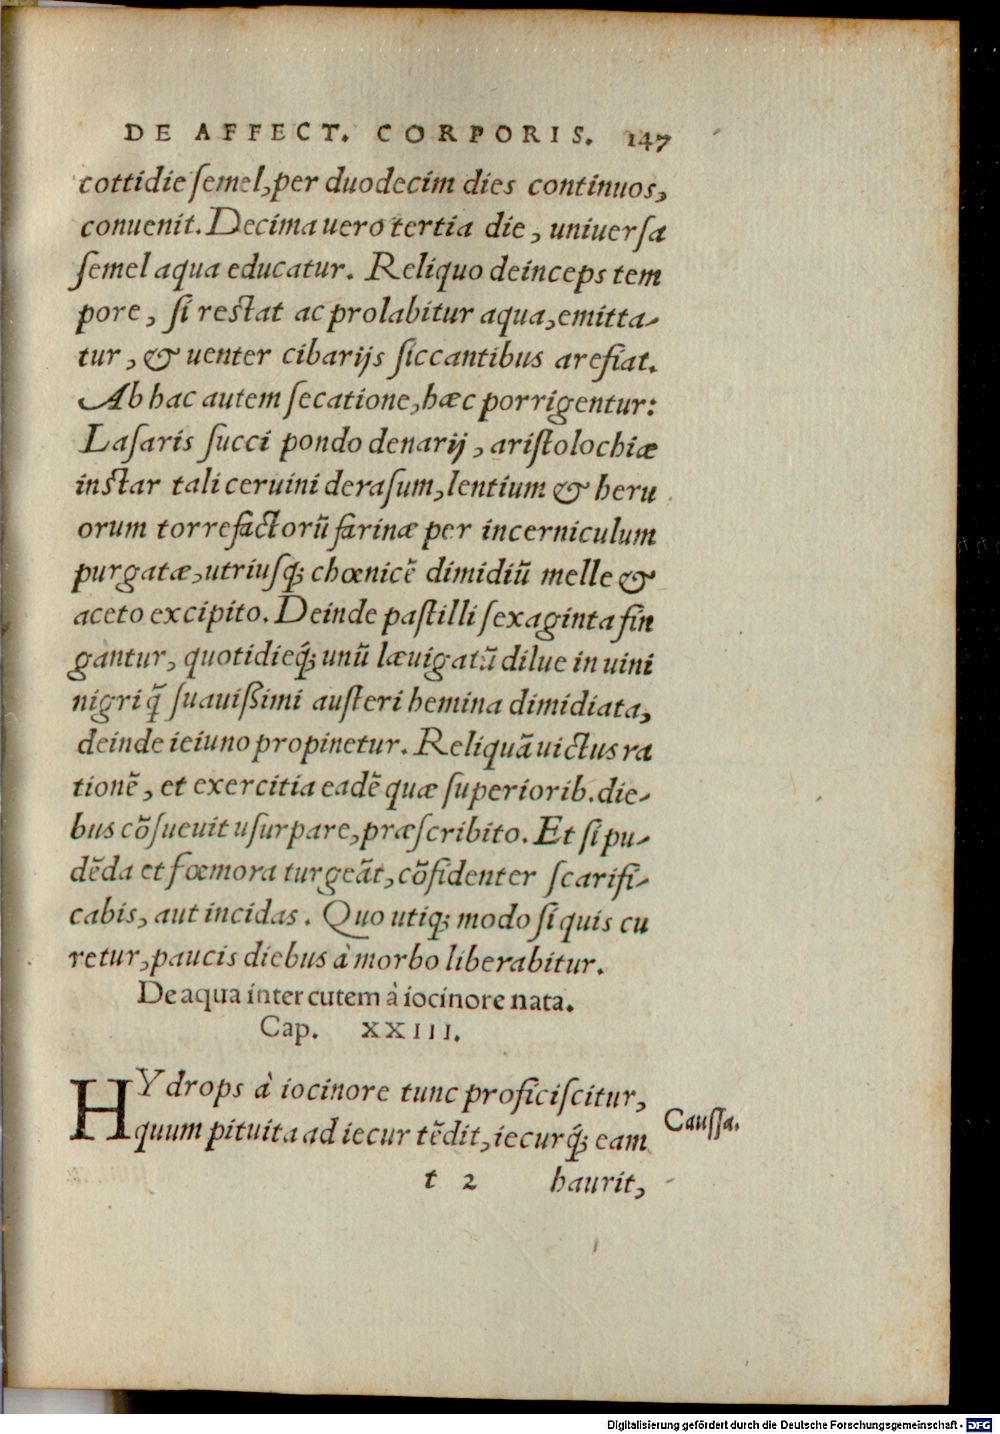 DE AFFECT. CORPORIS. 147
cottidie semel, per duodecim dies continuos,
conuenit. Decima uero tertia die, uniuersa
semel aqua educatur. Reliquo deinceps tem
pore, si restat ac prolabitur aqua, emitta-
tur, & uenter cibarijs siccantibus arefiat.
Ab hac autem secatione, hæc porrigentur:
Lasaris succi pondo denarij, aristolochiæ
instar tali ceruini derasum, lentium & heru
orum torrefactorũ farinæ per incerniculum
purgatæ, utriusq; chœnicẽ dimidiũ melle &
aceto excipito. Deinde pastilli sexaginta fin
gantur, quotidieq́; unũ læuigatũ dilue in uini
nigri q̃ suauißimi austeri hemina dimidiata,
deinde ieiuno propinetur. Reliquã uictus ra
tionẽ, et exercitia eadẽ quæ superiorib. die-
bus cõsueuit usurpare, præscribito. Et si pu-
dẽda et fœmora turgeãt, cõfidenter scarifi-
cabis, aut incidas. Quo utiq; modo si quis cu
retur, paucis diebus à morbo liberabitur.
De aqua inter cutem à iocinore nata.
Cap. XXIII.
HYdrops à iocinore tunc proficiscitur,
quum pituita ad iecur tẽdit, iecurq́; eam
Caussa.
t 2 haurit,
Digitalisierung gefördert durch die Deutsche Forschungsgemeinschaft - DFG